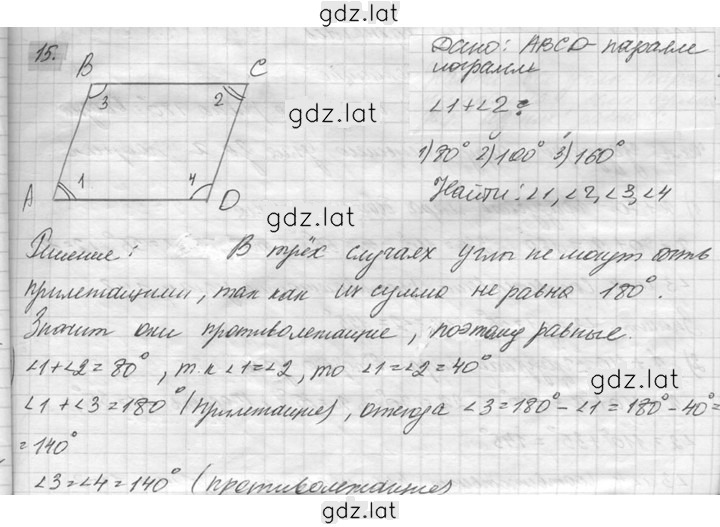 gdz.lat
15.
B C
3 2
A 1 4 D
Дано: ABCD - паралле
лограмль
∠1+∠2 =
1) 80° 2) 100° 3) 160°
Найти: ∠1, ∠2, ∠3, ∠4
gdz.lat
gdz.lat
Решение: В трёх случаях углы не могут быть
прилежащими, так как их сумма не равна 180°.
gdz.lat
Значит они противолежащие, поэтому равные.
∠1+∠2=80°, т.к ∠1=∠2, то ∠1=∠2=40°
gdz.lat
∠1+∠3=180° (прилежащие), откуда ∠3=180°-∠1=180°-40°=
=140°
∠3=∠4=140° (противолежащие)
gdz.lat